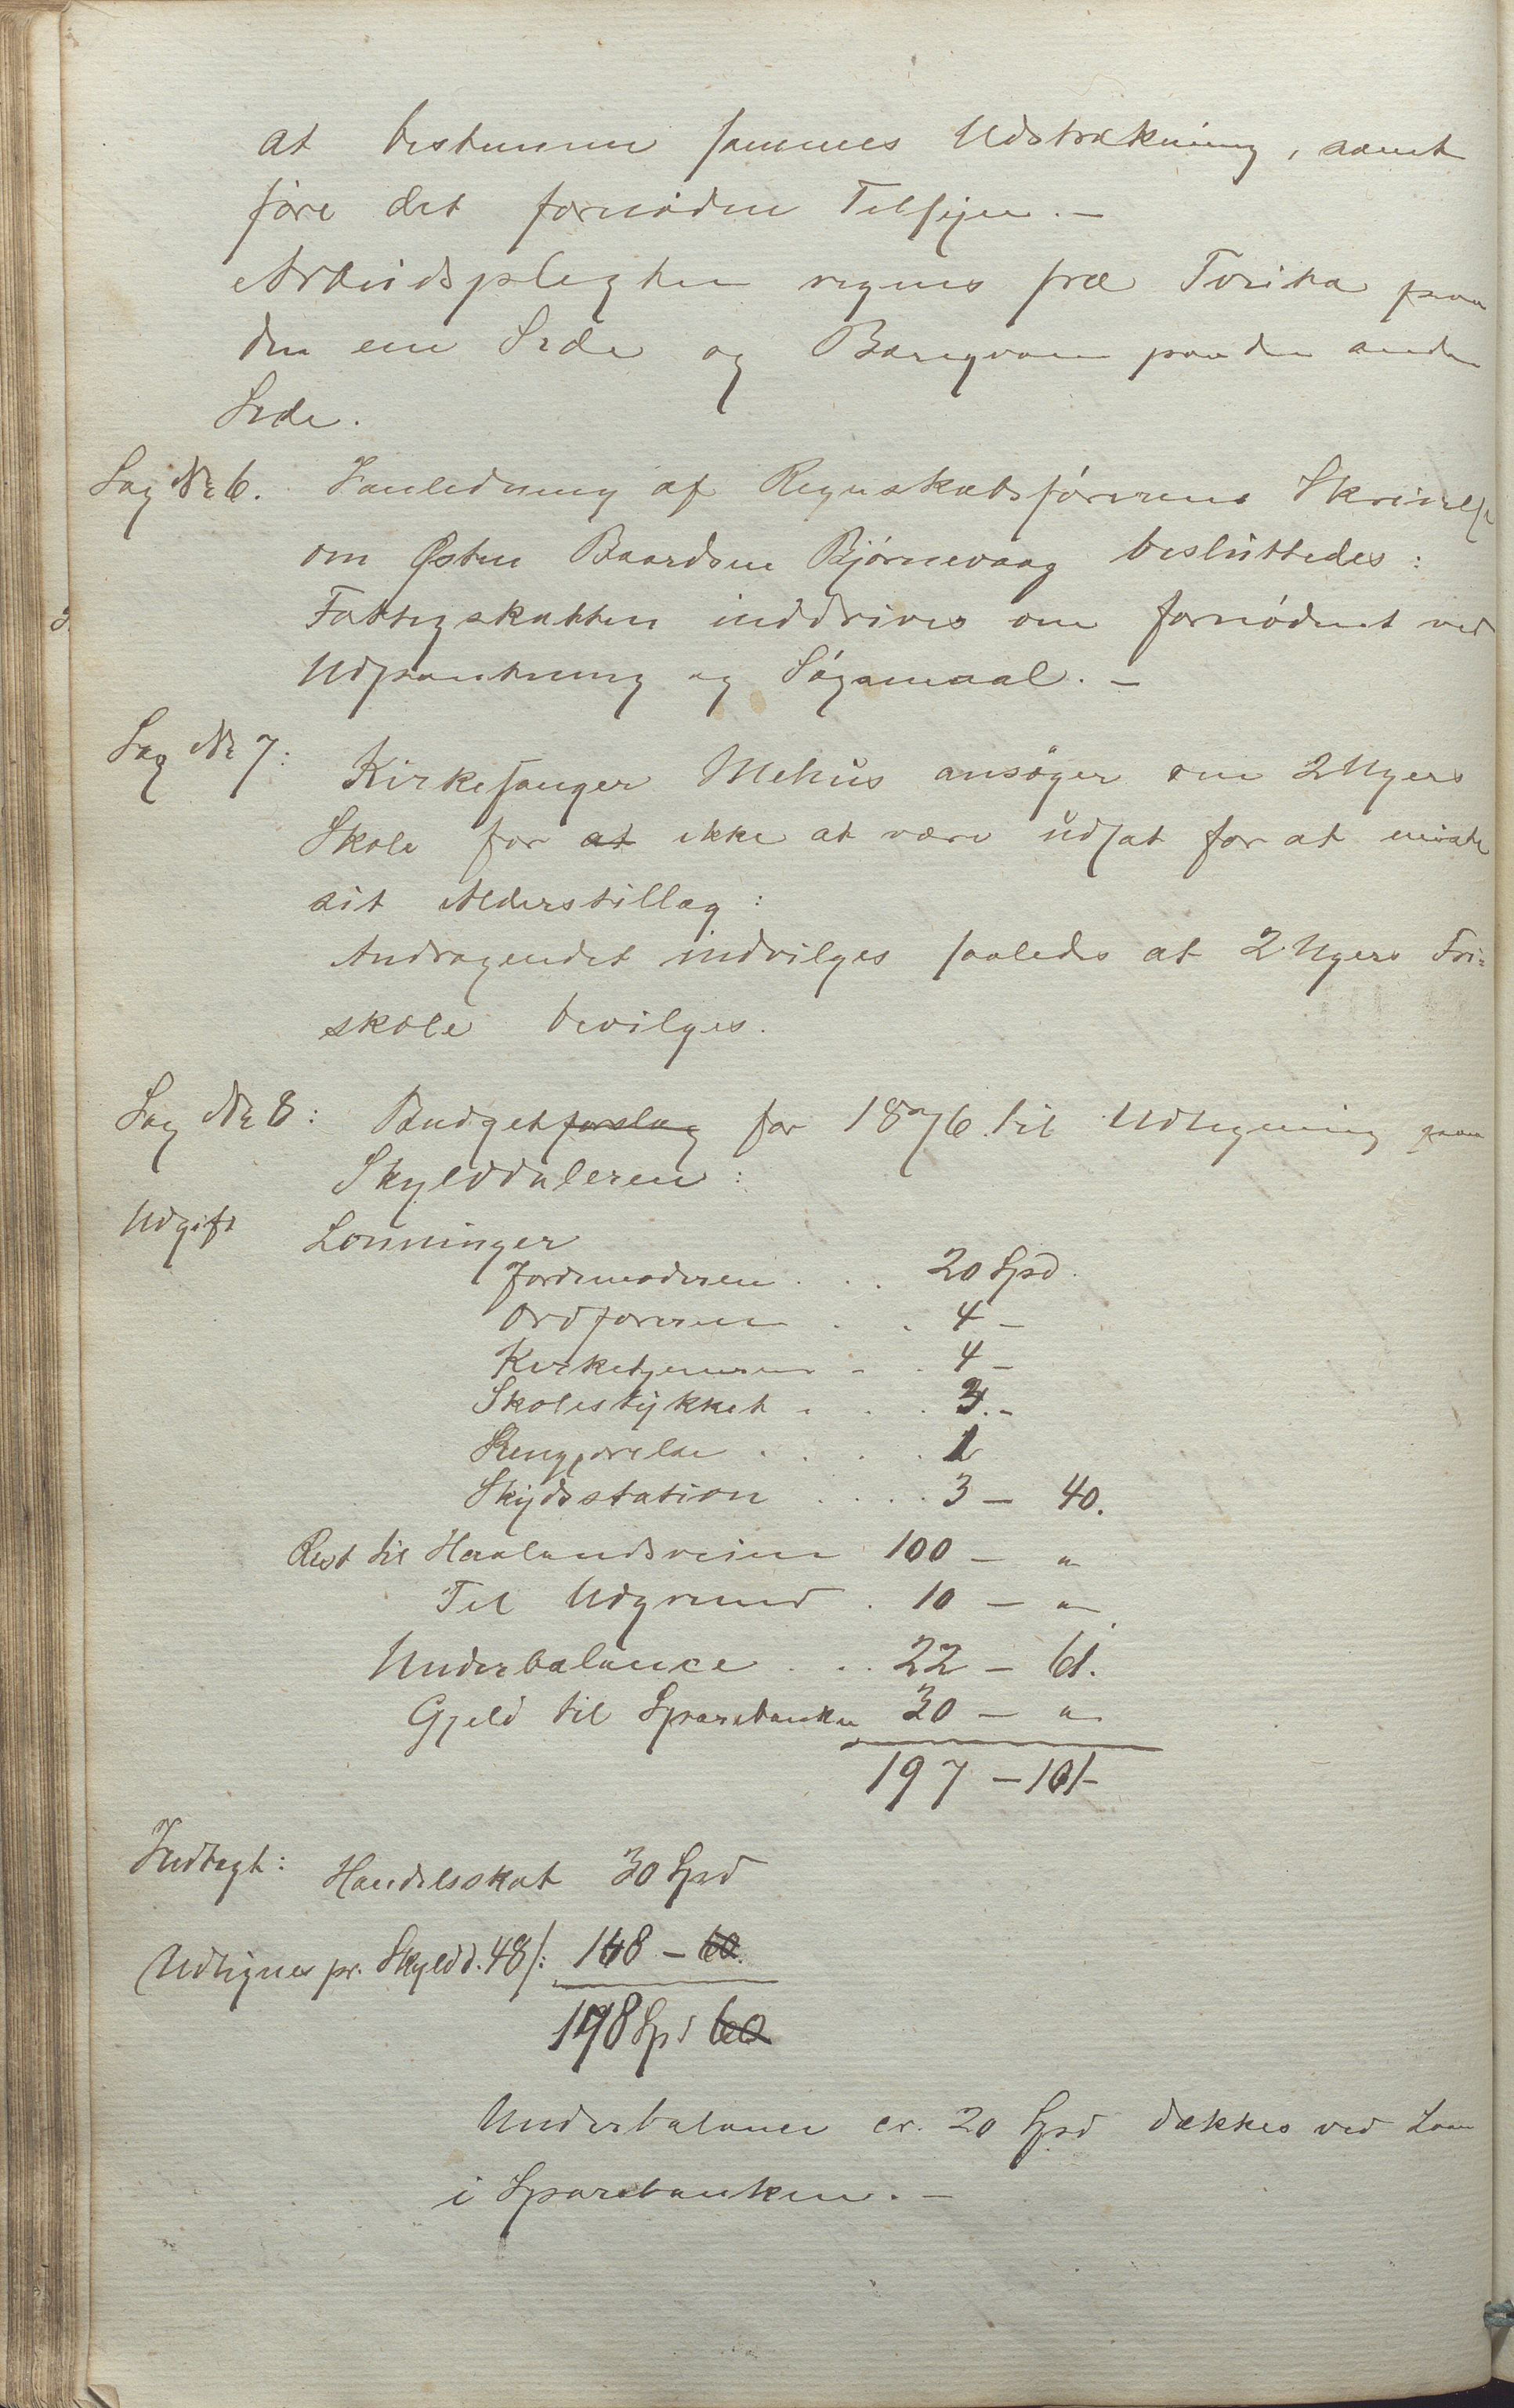 at bestemme sammes Udstrækning, samt
føre det fornødne Tilsyn. –
Arbeidspligten regnes fra Tveita paa
den ene Side og Baregvam paa den anden
Side.
Sag No 6. I Anledning af Regnskabsførerens Skrivelse
om Østen Baardsen Bjørnevaag besluttedes:
Fattigskatten inddrives om fornødent ved
Udpantning og Søgsmaal. –
Sag No 7: Kirkesanger Mehus ansøger om 2 Ugers
Skole for at ikke at være udsat for at miste
sit Alderstillæg:
Andragendet indvilges saaledes at 2 Ugers Fri=
skole bevilges.
Sag No 8: Budgetforslag for 1876 til Udligning paa
Skylddaleren:
Udgift Lønninger
Jordmoderen . . . 20 Spd.
Ordføreren . . 4 –
Kirketjeneren . . 4 –
Skolestykket . . . 3. –
Rengjørelse . . . . 1
Skydsstation . . . . 3 – 40.
Rest til Haalandsveien 100 – "
Til Udgrund . 10 – "
Underbalance . . . 22 – 61.
Gjeld til Sparebanken 30 – "
197 – 101 –
Indtægt: Handelsskat 30 Spd
Udlignes pr. Skyldd. 48 /: 168 – 60.
198 Spd 60
Underbalance cr. 20 Spd dækkes ved Laan
i Sparebanken. –